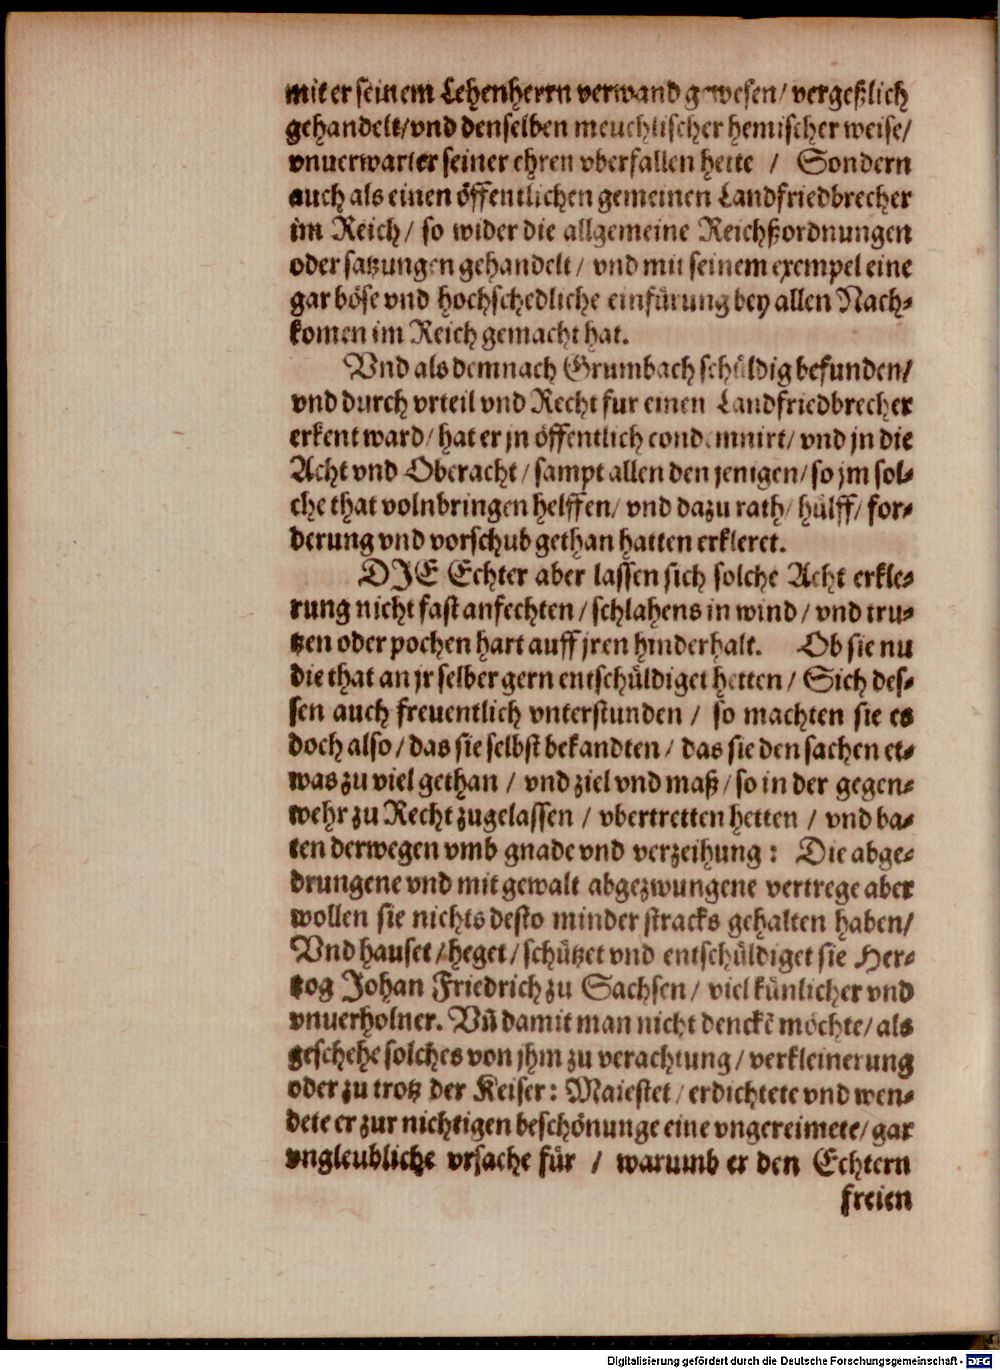 mit er seinem Lehenherrn verwand gewesen / vergeßlich
gehandelt / vnd denselben meuchlischer hemischer weise /
vnuerwarter seiner ehren vberfallen hette / Sondern
auch als einen öffentlichen gemeinen Landfriedbrecher
im Reich / so wider die allgemeine Reichßordnungen
oder satzungen gehandelt / vnd mit seinem exempel eine
gar böse vnd hochschedliche einfürung bey allen Nach⸗
komen im Reich gemacht hat.
Vnd als demnach Grumbach schüldig befunden /
vnd durch vrteil vnd Recht fur einen Landfriedbrecher
erkent ward / hat er jn öffentlich condemnirt / vnd jn die
Acht vnd Oberacht / sampt allen den jenigen / so jm sol⸗
che that volnbringen helffen / vnd dazu rath / hülff / for⸗
derung vnd vorschub gethan hatten erkleret.
DJE Echter aber lassen sich solche Acht erkle⸗
rung nicht fast anfechten / schlahens in wind / vnd tru⸗
tzen oder pochen hart auff jren hinderhalt. Ob sie nu
die that an jr selber gern entschüldiget hetten / Sich des⸗
sen auch freuentlich vnterstunden / so machten sie es
doch also / das sie selbst bekandten / das sie den sachen et⸗
was zu viel gethan / vnd ziel vnd maß / so in der gegen⸗
wehr zu Recht zugelassen / vbertretten hetten / vnd ba⸗
ten derwegen vmb gnade vnd verzeihung : Die abge⸗
drungene vnd mit gewalt abgezwungene vertrege aber
wollen sie nichts desto minder stracks gehalten haben /
Vnd hauset / heget / schützet vnd entschüldiget sie Her⸗
tzog Johan Friedrich zu Sachsen / viel künlicher vnd
vnuerholner. Vñ damit man nicht denckẽ möchte / als
geschehe solches von jhm zu verachtung / verkleinerung
oder zu trotz der Keiser: Maiestet / erdichtete vnd wen⸗
dete er zur nichtigen beschönunge eine vngereimete / gar
vngleubliche vrsache für / warumb er den Echtern
freien
Digitalisierung gefördert durch die Deutsche Forschungsgemeinschaft - DFG